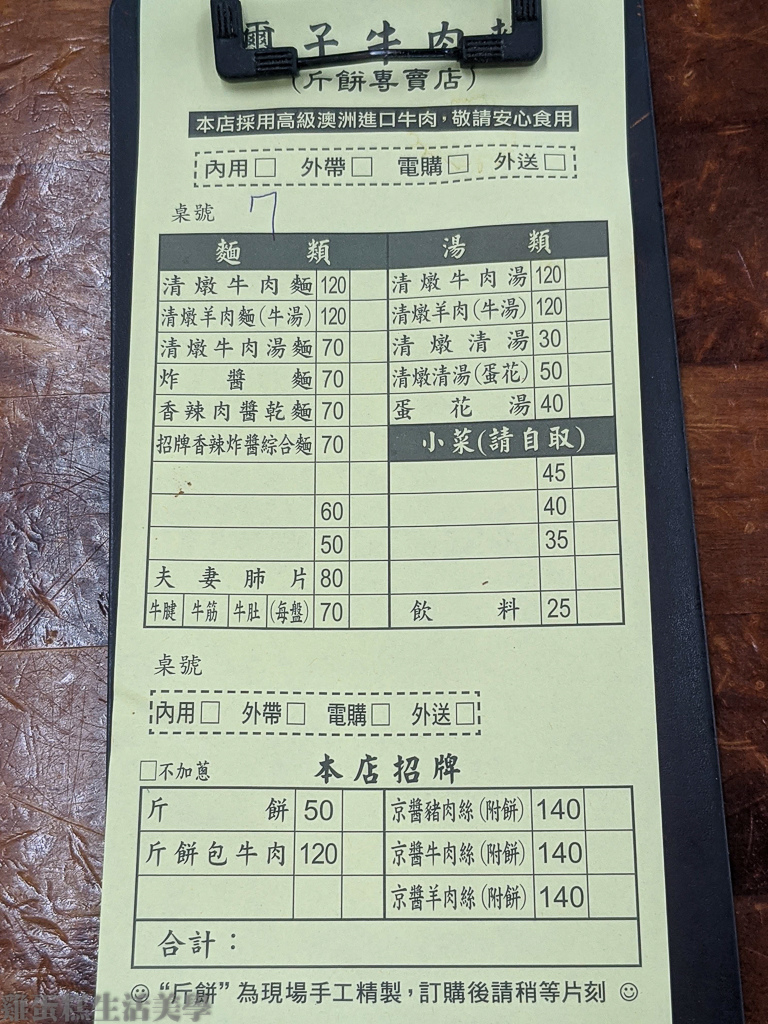 子牛肉
(斤餅專賣店)
本店採用高級澳洲進口牛肉，敬請安心食用
內用□ 外帶□ 電購□ 外送□
桌號 7
麵類 湯類
清燉牛肉麵 120 清燉牛肉湯 120
清燉羊肉麵(牛湯) 120 清燉羊肉(牛湯) 120
清燉牛肉湯麵 70 清燉清湯 30
炸醬麵 70 清燉清湯(蛋花) 50
香辣肉醬乾麵 70 蛋花湯 40
招牌香辣炸醬綜合麵 70 小菜(請自取)
45
60 40
50 35
夫妻肺片 80
牛腱 牛筋 牛肚 (每盤) 70 飲料 25
桌號
內用□ 外帶□ 電購□ 外送□
□不加蔥 本店招牌
斤餅 50 京醬豬肉絲(附餅) 140
斤餅包牛肉 120 京醬牛肉絲(附餅) 140
京醬羊肉絲(附餅) 140
合計：
☺“斤餅”為現場手工精製，訂購後請稍等片刻☺
雞蛋糕生活美學